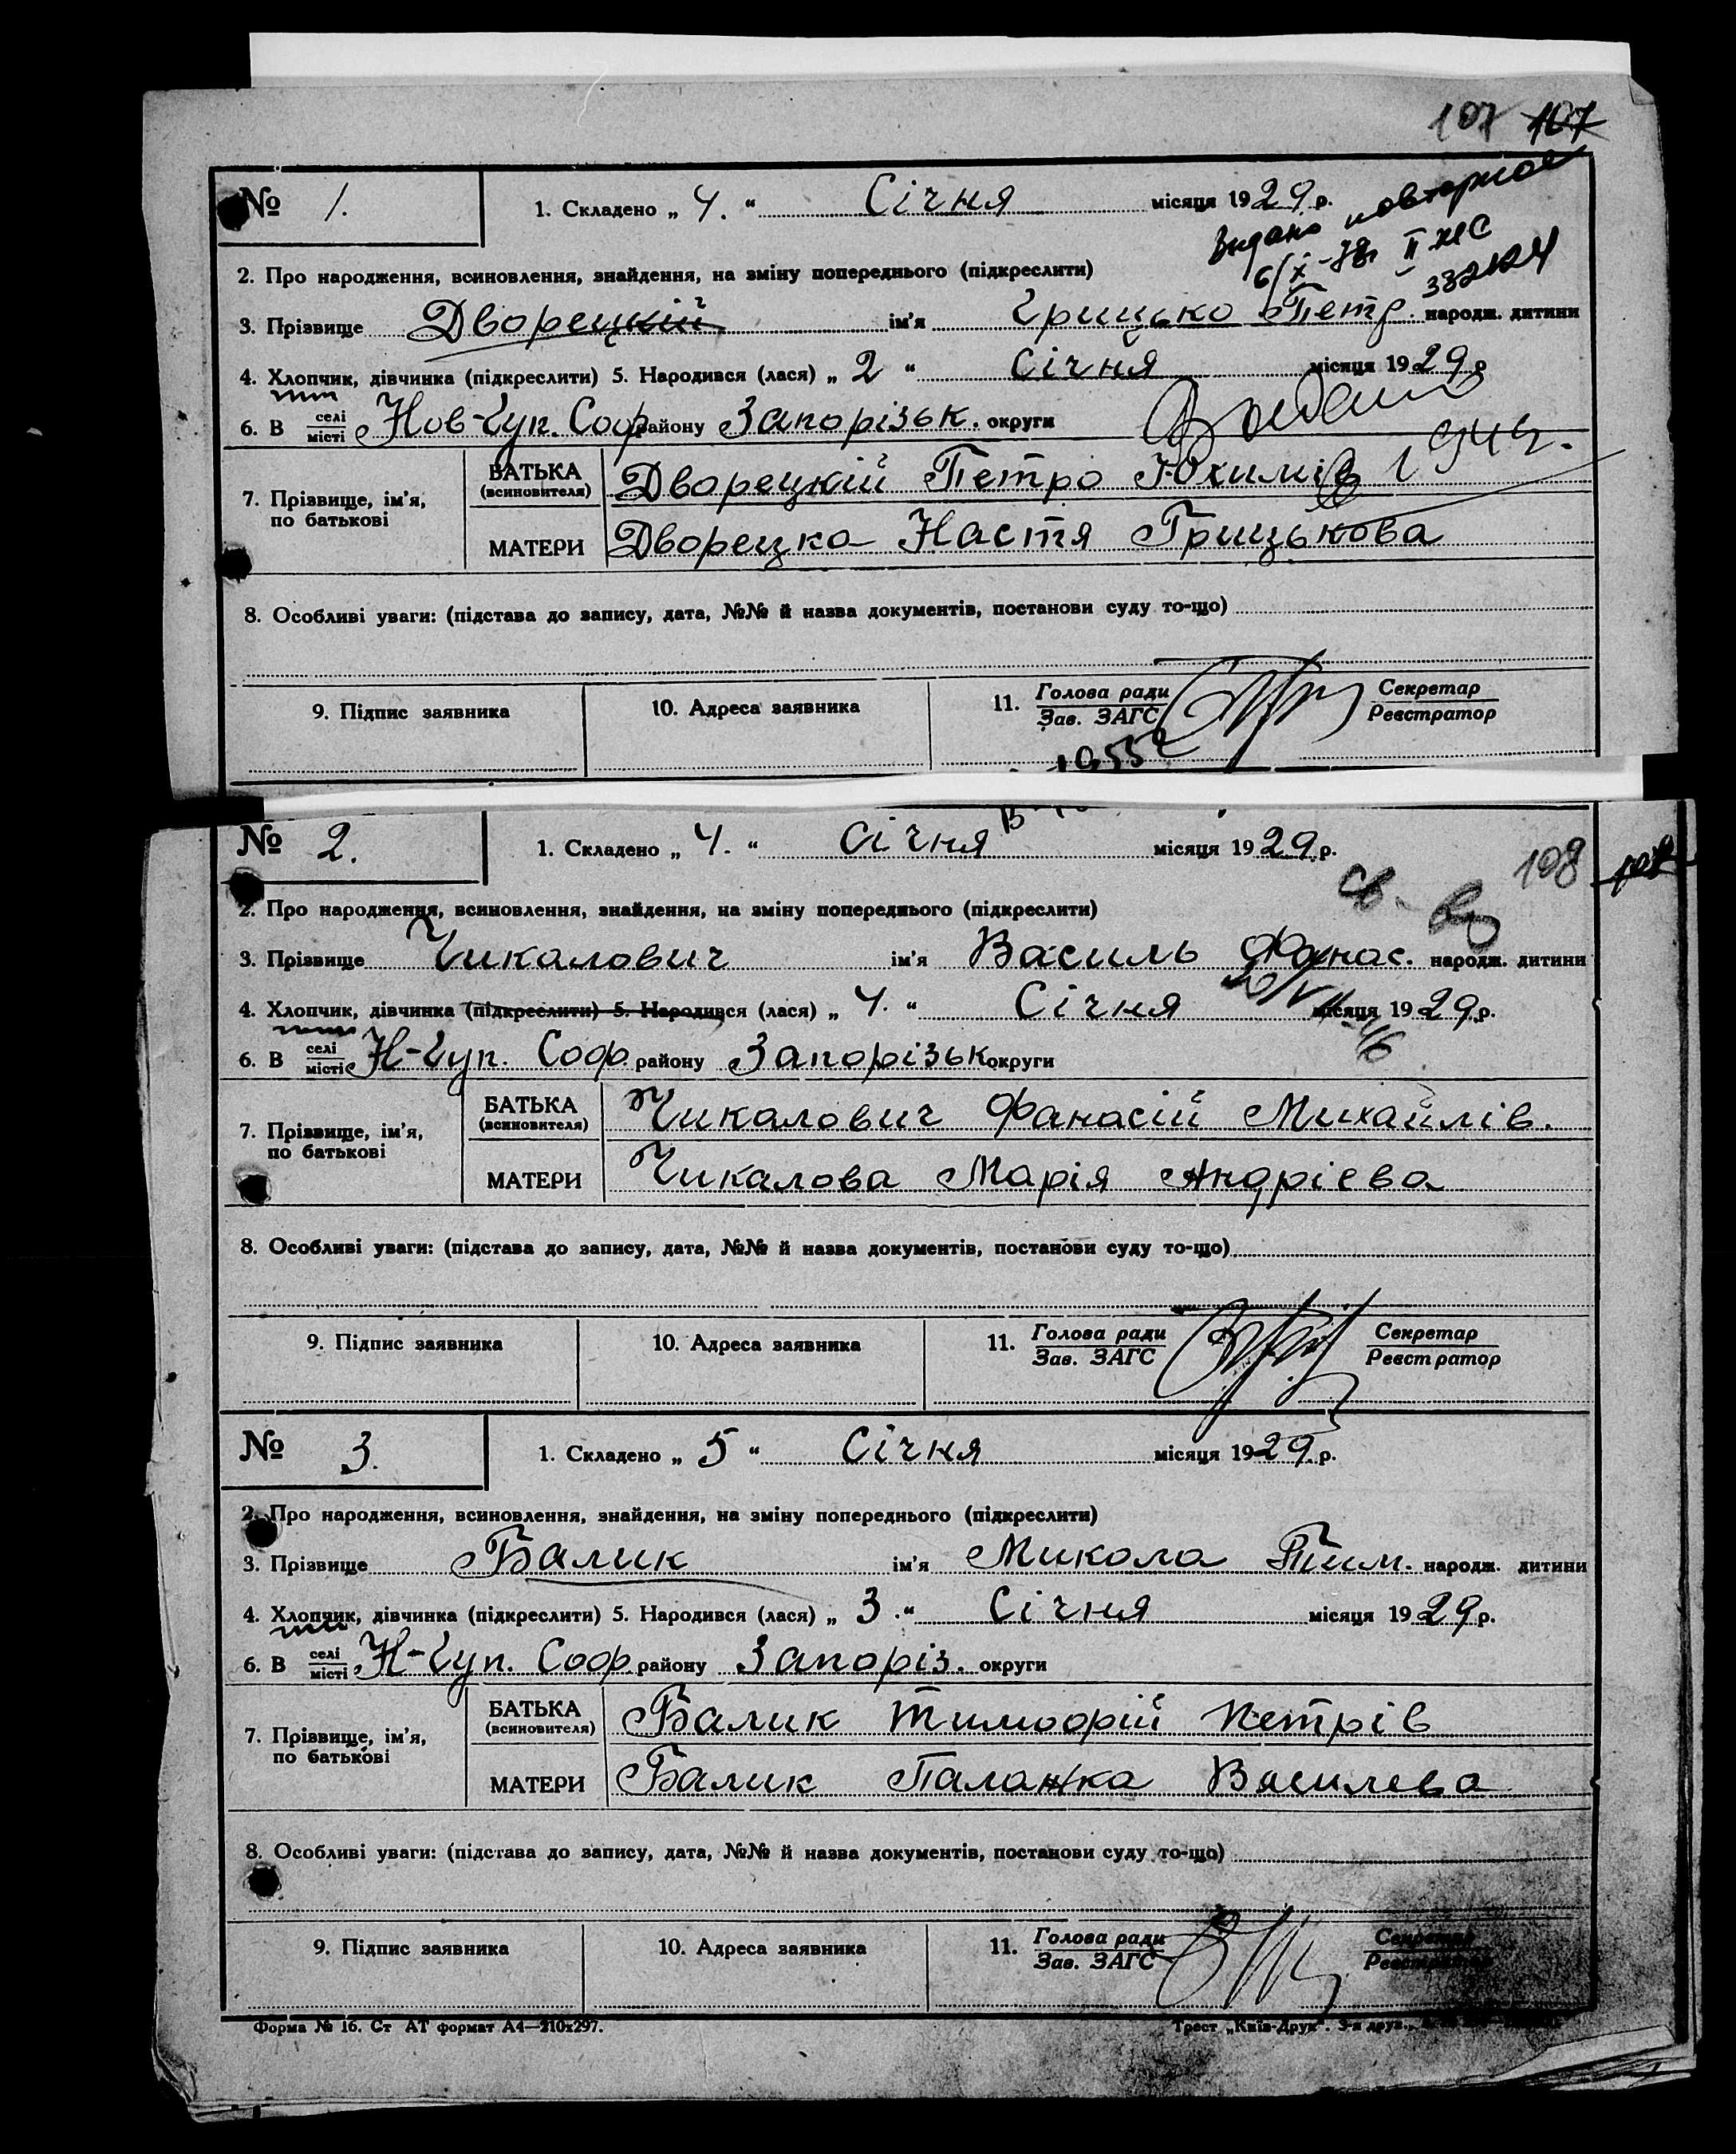 107 107
№ 1. 1. Складено „ 4. “ Січня місяця 1929 р.
Видано повторное
6/X-78г II ЖС
2. Про народження, всиновлення, знайдення, на зміну попереднього (підкреслити)
3. Прізвище Дворецкій ім'я Грицько Петр. народж. дитини
4. Хлопчик, дівчинка (підкреслити) 5. Народився (лася) „ 2 “ Січня місяця 1929 р
6. В селі місті Нов-Гуп. Соф. району Запорізьк. округи
7. Прізвище, ім'я, по батькові
БАТЬКА (всиновителя) Дворецкій Петро Юхимів
МАТЕРИ Дворецка Настя Грицькова
8. Особливі уваги: (підстава до запису, дата, №№ й назва документів, постанови суду то-що)
9. Підпис заявника 10. Адреса заявника 11. Голова ради Зав. ЗАГС Секретар Реєстратор
1955г
№ 2. 1. Складено „ 4. “ Січня місяця 1929 р.
108
2. Про народження, всиновлення, знайдення, на зміну попереднього (підкреслити)
3. Прізвище Чикалович ім'я Василь Фанас. народж. дитини
4. Хлопчик, дівчинка (підкреслити) 5. Народився (лася) „ 4. “ Січня місяця 1929 р.
6. В селі місті Н-Гуп. Соф. району Запорізьк округи
7. Прізвище, ім'я, по батькові
БАТЬКА (всиновителя) Чикалович Фанасій Михайлів.
МАТЕРИ Чикалова Марія Андрієва
8. Особливі уваги: (підстава до запису, дата, №№ й назва документів, постанови суду то-що)
9. Підпис заявника 10. Адреса заявника 11. Голова ради Зав. ЗАГС Секретар Реєстратор
№ 3. 1. Складено „ 5 “ Січня місяця 1929. р.
2. Про народження, всиновлення, знайдення, на зміну попереднього (підкреслити)
3. Прізвище Балик ім'я Микола Тим. народж. дитини
4. Хлопчик, дівчинка (підкреслити) 5. Народився (лася) „ 3. “ Січня місяця 1929 р.
6. В селі місті Н-Гуп. Соф. району Запоріз. округи
7. Прізвище, ім'я, по батькові
БАТЬКА (всиновителя) Балик Тимофрій Петрів
МАТЕРИ Балик Палажка Василева
8. Особливі уваги: (підстава до запису, дата, №№ й назва документів, постанови суду то-що)
9. Підпис заявника 10. Адреса заявника 11. Голова ради Зав. ЗАГС Секретар Реєстратор
Форма № 16. Ст АТ формат А4—210х297. Трест „Київ-Друк“. 3-я друк.